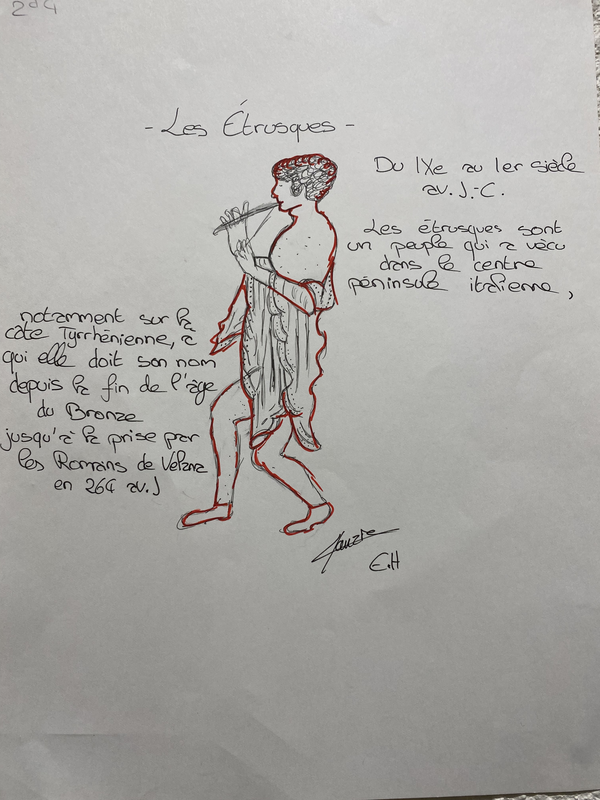 2d4
- Les Étrusques -
Du IXe au 1er siècle
av. J.-C.
Les étrusques sont
un peuple qui a vécu
dans le centre
péninsule italienne,
notamment sur la
côte Tyrrhénienne, à
qui elle doit son nom
depuis la fin de l'âge
du Bronze
jusqu'à la prise par
les Romans de Velzna
en 264 av.J
E.H